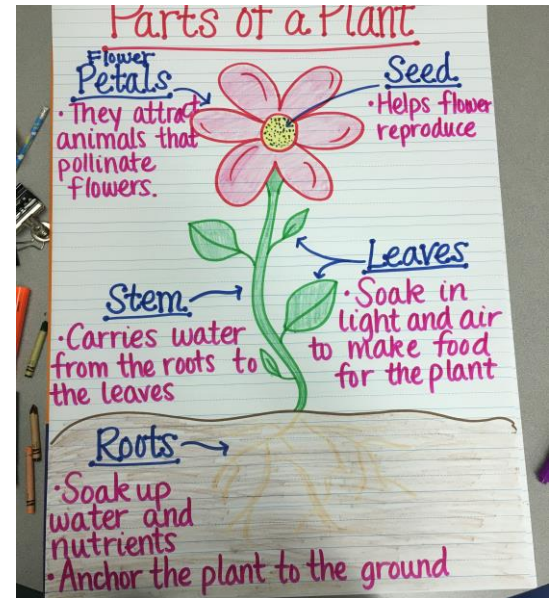 Parts of a Plant
Flower
Petals
· They attract
animals that
pollinate
flowers.
Seed
· Helps flower
reproduce
Leaves
· Soak in
light and air
to make food
for the plant
Stem
· Carries water
from the roots to
the leaves
Roots
· Soak up
water and
nutrients
· Anchor the plant to the ground